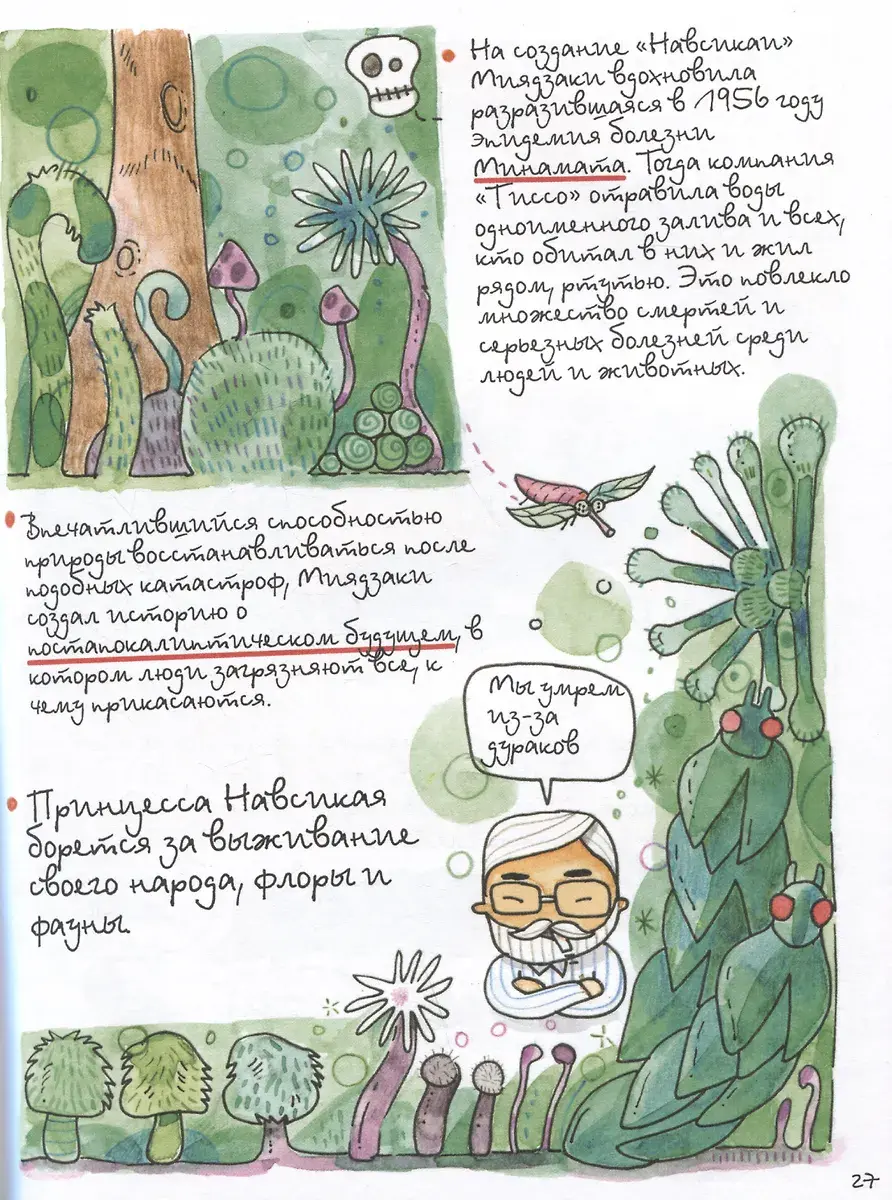 На создание «Навсикаи»
Миядзаки вдохновила
разразившаяся в 1956 году
эпидемия болезни
Минамата. Тогда компания
«Тиссо» отравила воды
одноименного залива и всех,
кто обитал в них и жил
рядом, ртутью. Это повлекло
множество смертей и
серьезных болезней среди
людей и животных.
Впечатлившийся способностью
природы восстанавливаться после
подобных катастроф, Миядзаки
создал историю о
постапокалиптическом будущем, в
котором люди загрязняют все, к
чему прикасаются.
Мы умрем
из-за
дураков
Принцесса Навсикая
борется за выживание
своего народа, флоры и
фауны.
27